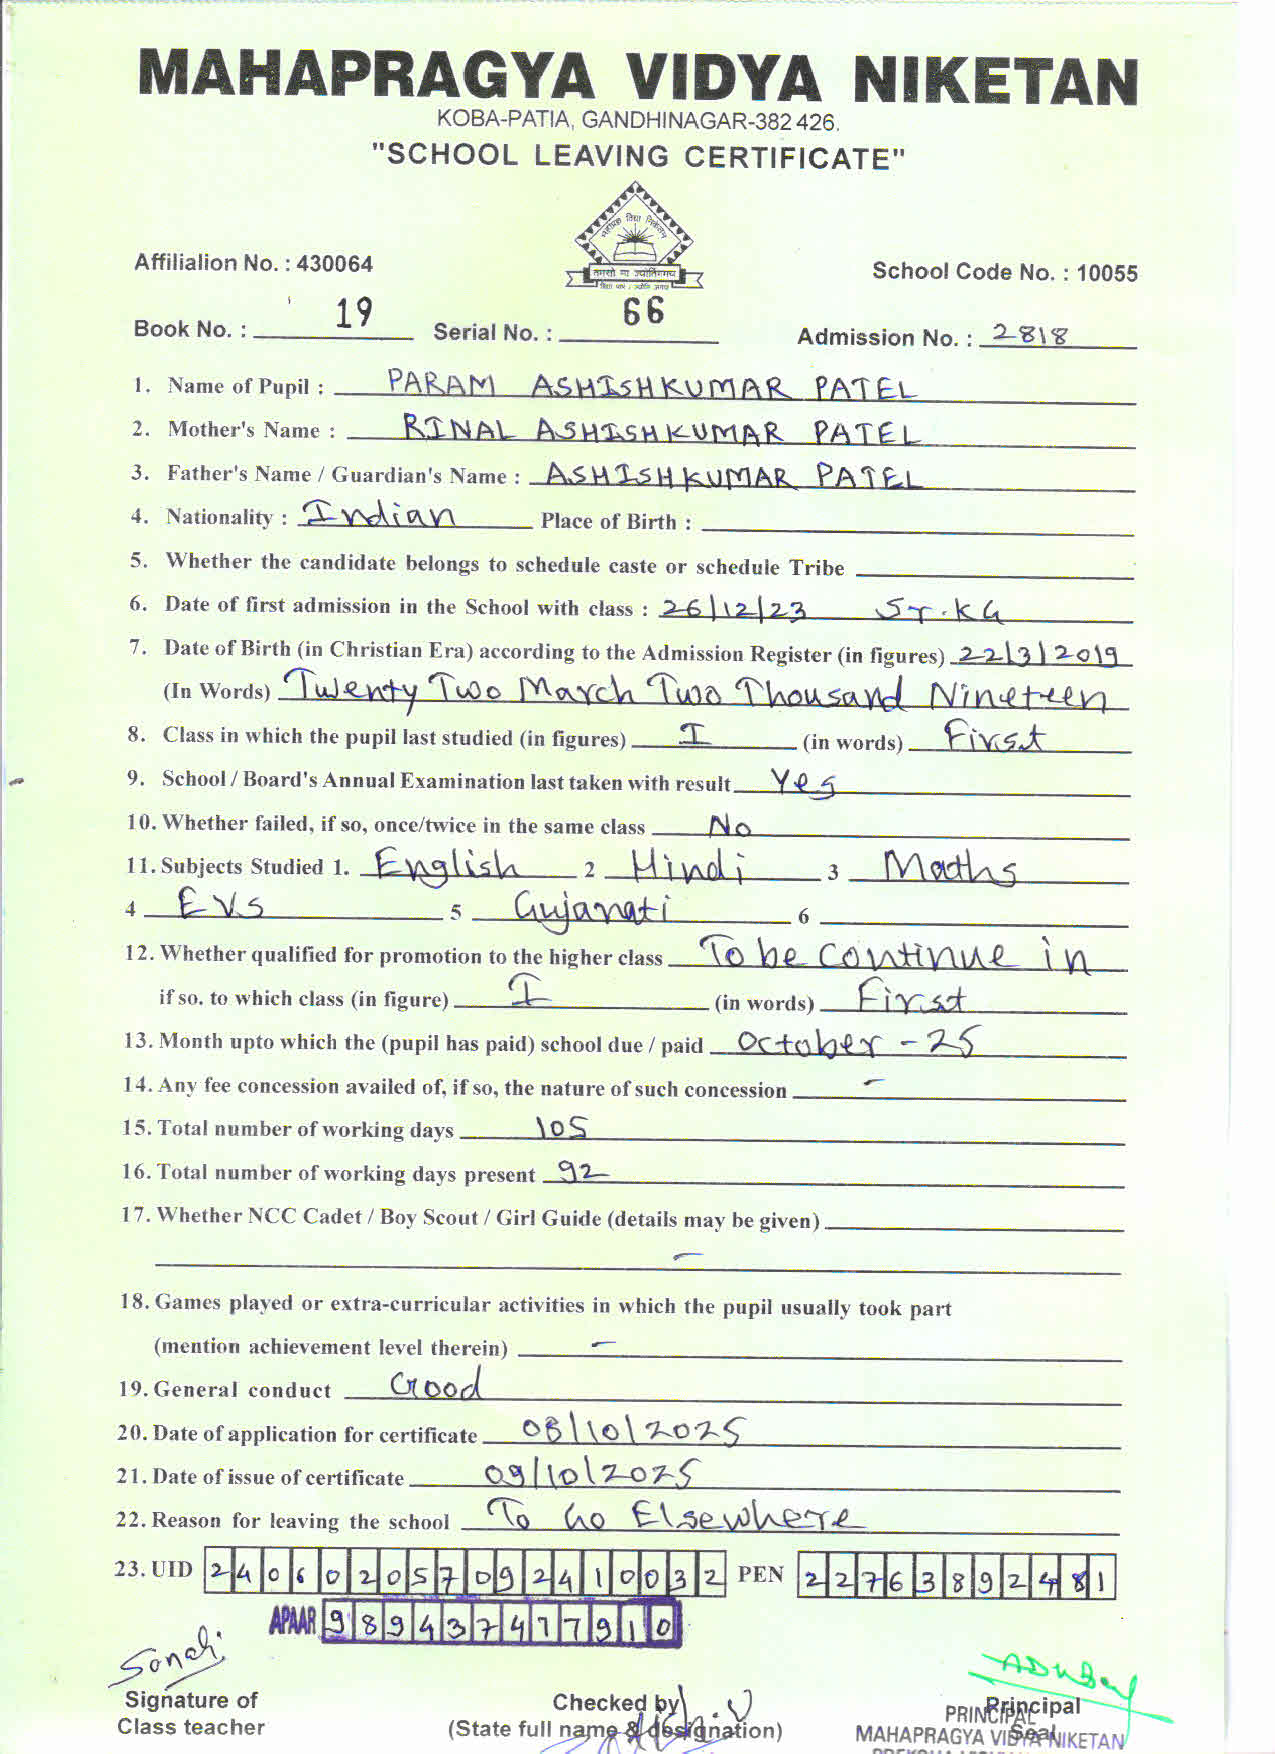 MAHAPRAGYA VIDYA NIKETAN
KOBA-PATIA, GANDHINAGAR-382 426.
"SCHOOL LEAVING CERTIFICATE"
तमसो मा ज्योतिर्गमय
Affilialion No. : 430064
School Code No. : 10055
Book No. : 19 Serial No. : 66 Admission No. : 2818
1. Name of Pupil : PARAM ASHISHKUMAR PATEL
2. Mother's Name : RINAL ASHISHKUMAR PATEL
3. Father's Name / Guardian's Name : ASHISHKUMAR PATEL
4. Nationality : Indian Place of Birth :
5. Whether the candidate belongs to schedule caste or schedule Tribe
6. Date of first admission in the School with class : 26/12/23 Sr.KG
7. Date of Birth (in Christian Era) according to the Admission Register (in figures) 22/3/2019
(In Words) Twenty Two March Two Thousand Nineteen
8. Class in which the pupil last studied (in figures) I (in words) First
9. School / Board's Annual Examination last taken with result Yes
10. Whether failed, if so, once/twice in the same class No
11. Subjects Studied 1. English 2 Hindi 3 Maths
4 EVS 5 Gujarati 6
12. Whether qualified for promotion to the higher class To be continue in
if so. to which class (in figure) I (in words) First
13. Month upto which the (pupil has paid) school due / paid October - 25
14. Any fee concession availed of, if so, the nature of such concession -
15. Total number of working days 105
16. Total number of working days present 92
17. Whether NCC Cadet / Boy Scout / Girl Guide (details may be given)
-
18. Games played or extra-curricular activities in which the pupil usually took part
(mention achievement level therein) -
19. General conduct Good
20. Date of application for certificate 08/10/2025
21. Date of issue of certificate 09/10/2025
22. Reason for leaving the school To Go Elsewhere
23. UID 240602057092410032 PEN 22763892481
APAAR 989437477910
Sonali
Signature of
Class teacher
Checked by
(State full name & designation)
Principal
Seal
PRINCIPAL
MAHAPRAGYA VIDYA NIKETAN